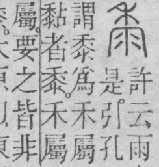 黍許云雨
是。引孔
謂黍為禾屬
黏者黍。禾屬
屬。要之皆非